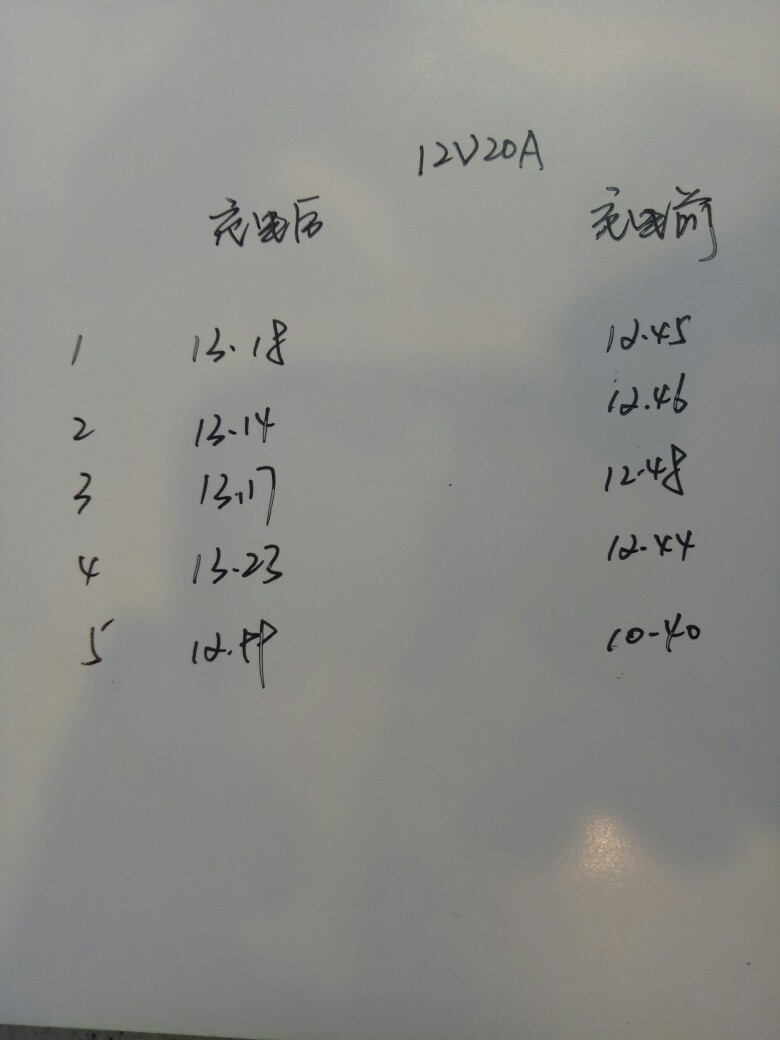 12V20A
充电后 充电前
1 13.18 12.45
2 13.14 12.46
3 13.17 12.48
4 13.23 12.44
5 10.40